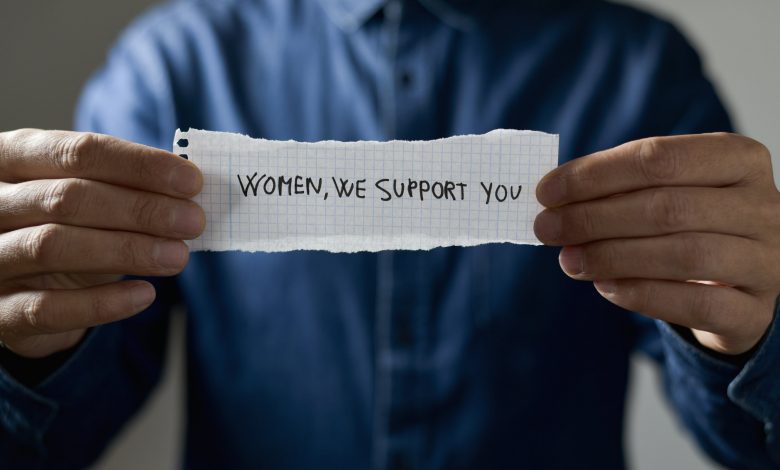 WOMEN, WE SUPPORT YOU